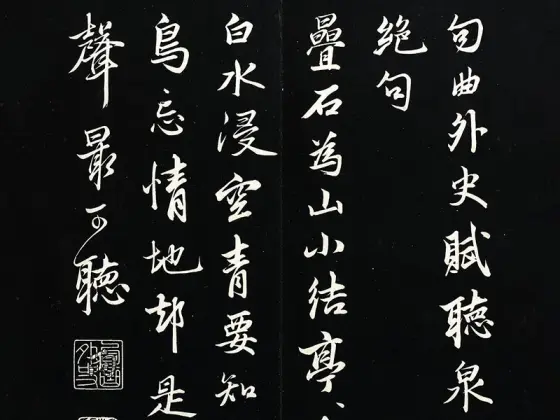 句曲外史賦聽泉
絕句
疊石為山小結亭
白水浸空青要知
鳥忘情地却是
聲最可聽